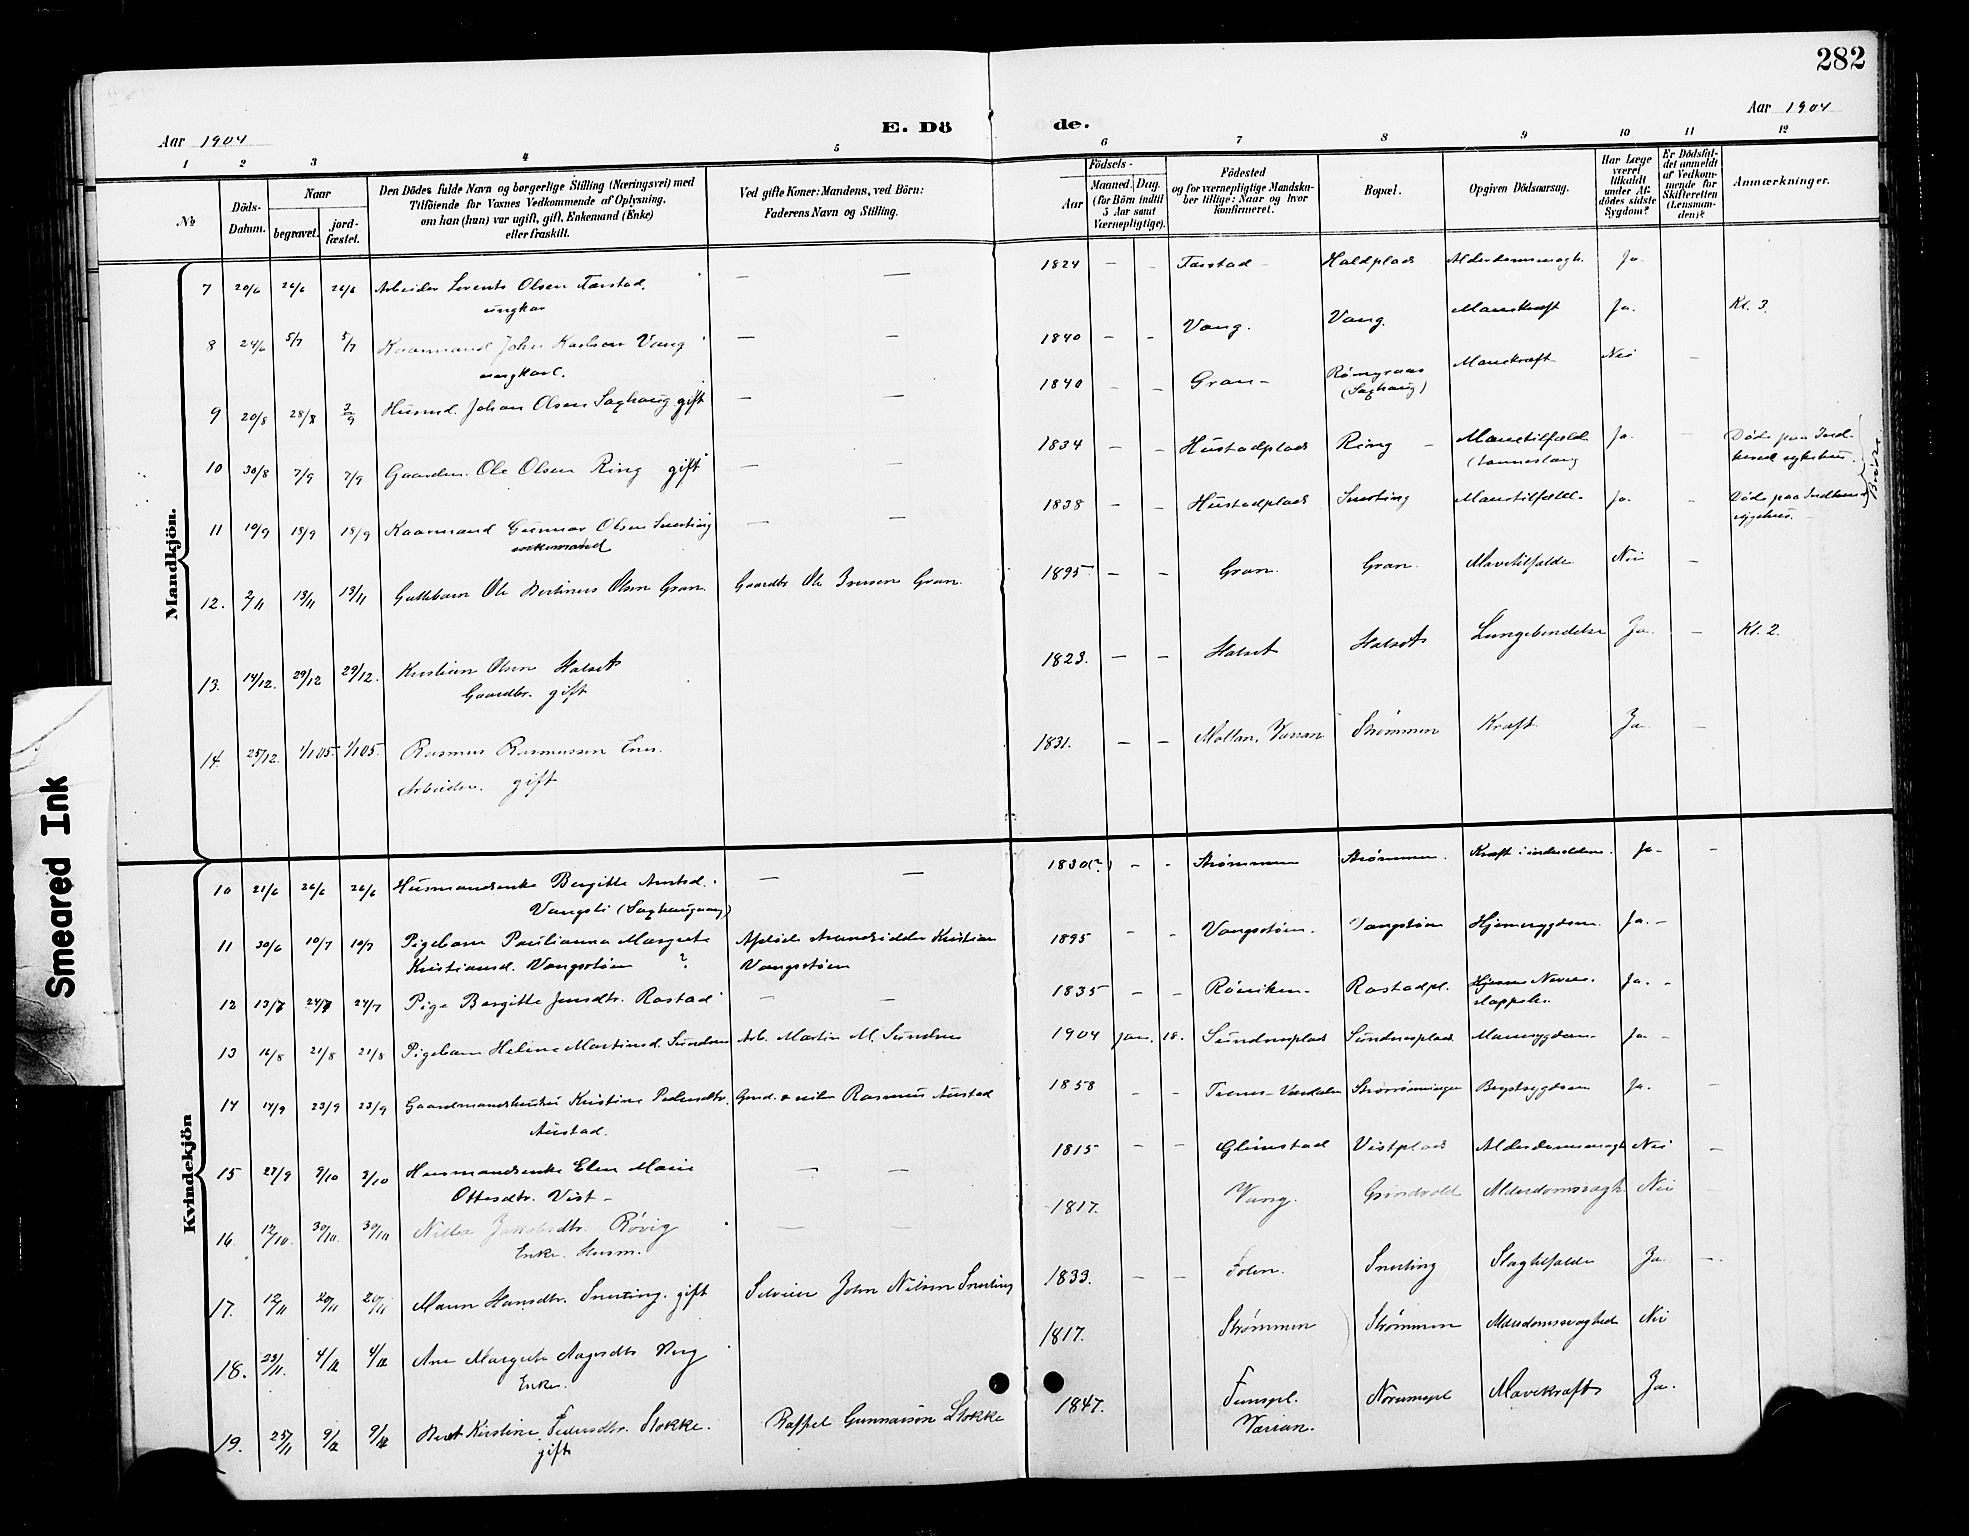 282
Aar 1904
E. Döde.
Aar 1904
1 2 3 4 5 6 7 8 9 10 11 12
No.
Döds-Datum.
Naar
begravet.
jord-fæstet.
Den Dödes fulde Navn og borgerlige Stilling (Næringsvei) med
Tilföiende for Voxnes Vedkommende af Oplysning,
om han (hun) var ugift, gift, Enkemand (Enke)
eller fraskilt.
Ved gifte Koner: Mandens, ved Börn:
Faderens Navn og Stilling.
Födsels-
Aar
Maaned. Dag.
(for Börn indtil
5 Aar samt
Værnepligtige).
Födested
og for værnepligtige Mandska-
ber tillige: Naar og hvor
konfirmeret.
Bopæl.
Opgiven Dödsaarsag.
Har Læge
været
tilkaldt
under Af-
dödes sidste
Sygdom?
Er Dödsfal-
det anmeldt
af Vedkom-
mende for
Skifteretten
(Lensman-
den)?
Anmærkninger.
Mandkjön.
7 20/6 26/6 26/6 Arbeider Olsen Færstad. — — 1824 — - Færstad - Haldplads Alderdomssvagh. Ja.
ungkar
8 24/6 5/7 5/7 Kaarmand John Karlsen Vang — — 1840 — - Vang. Vang. Mavekræft Ja. Kl. 3.
ungkarl.
9 20/8 28/8 3/9 Husmd. Johan Olsen Saghaug gift — — 1840 - - Gran - (Saghaug) Mavekræft Nei -
10 30/8 7/9 7/9 Gaardm. Ole Olsen Ring gift — — 1834 - - Hustadplads Ring - Mavetilfælde Ja. - Döde paa Ind-
herred sykehus.
11 10/9 18/9 18/9 Kaarmand Gunnar Olsen Snerting — — 1838 - - Hustadplads Snerting Mavetilfælde Ja. - Döde paa Indherred
sygehus.
enkemand
12. 2/11 13/11 13/11 Guttebarn Ole Bertinus Olsen Gran. Gaardbr. Ole Iversen Gran. 1895 — - Gran. Gran. Mavetilfælde Nei -
13. 14/12. 29/12 29/12. Kristian Olsen Halset 1823. — - Halset Halset Lungebendelse Ja. - Kl. 2.
Gaardbr. gift
14. 25/12. 1/1 05. 1/1 05. Rasmus Rasmussen 1831. — - Mollan, Værran Strømmen Kræft Ja. -
Arbeider. gift
Kvindekjön
10 21/6 26/6 26/6 Husmandsenke Bergitte — — 1830(?) - - Strømmen Strømmen. Kræft i Ja. -
Vangsli
11 30/6 10/7 10/7 Pigebarn Paulianna Margrete Afdöde Strandsidder Kristian 1895 - - Vangstøen. Vangstøen Hjernesygdom. Ja. -
Kristiansd. Vangstøen ? Vangstøen
12 13/7 24/7 24/7 Pige Bergitte Jensdtr. Rostad — — 1835 - - Røviken - Rostadpl. Ja. -
13 16/8 21/8 21/8 Pigebarn Heline Martinsd. Sundnes Arb. Martin M. Sundnes 1904 Jan. 18. Sundnesplads Sundnesplads Mavesygdom. Ja. -
14 14/9 23/9 23/9 Gaardmandshustru Kristine Pedersdtr. Rasmus Austad 1858 - - Værdalen Brystsygdom Ja. -
Austad.
15 27/9 9/10 9/10 Husmandsenke Elen Marie — — 1815 - - Glimstad Vistplads Alderdomssvagh. Nei -
Ottesdtr. Vist -
16. 17/10. 30/10. 30/10 Jakobsdtr. Røvig — — 1817. Vang. Grindvold Alderdomssvagh. Nei
Enke. Husm.
17. 12/11 20/11 20/11 Maren Hansdtr. Snerting. gift Selveier John Nilsen Snerting 1833. - - Folen. Snerting Slagtilfælde Ja. -
18. 23/11. 4/12 4/12 Ane Margrete 1817. Strømmen Strømmen Alderdomssvaghed Nei
Enke.
19. 25/11 9/12 9/12 Beret Kirstine Pedersdtr. Stokke. Raffel Gunnarson Stokke 1847. Norumspl Mavekræft Ja.
gift Værran.
Smeared Ink